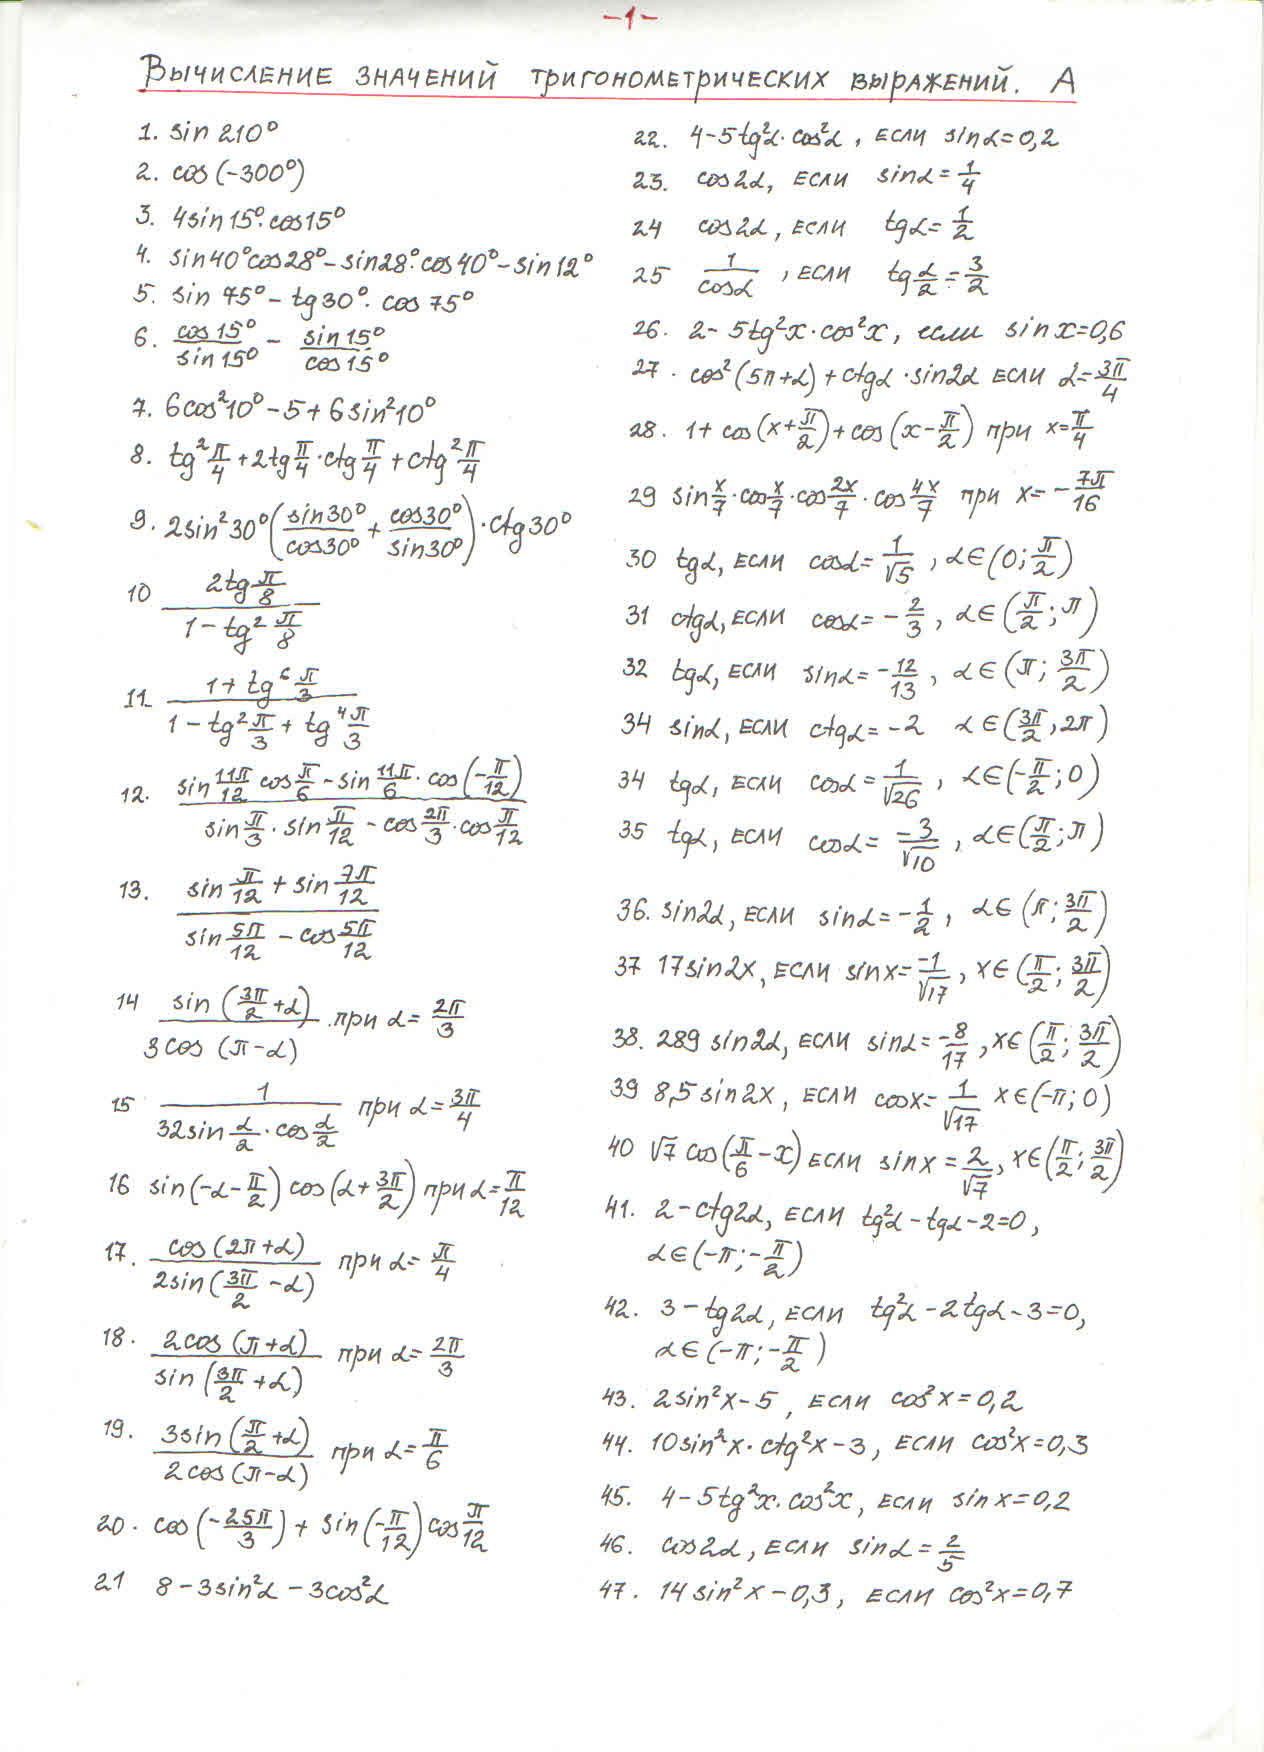 -1-
Вычисление значений тригонометрических выражений. А
1. sin 210°
2. cos (-300°)
3. 4sin15°·cos15°
4. sin40°cos28° - sin28°·cos40° - sin12°
5. sin 75° - tg30°· cos 75°
6. cos15°/sin15° - sin15°/cos15°
7. 6cos²10° - 5 + 6sin²10°
8. tg²π/4 + 2tgπ/4·ctgπ/4 + ctg²π/4
9. 2sin²30°(sin30°/cos30° + cos30°/sin30°)·ctg30°
10 2tgπ/8 / (1 - tg²π/8)
11. (1 + tg⁶π/3) / (1 - tg²π/3 + tg⁴π/3)
12. (sin11π/12 cosπ/6 - sin11π/6·cos(-π/12)) / (sinπ/3·sinπ/12 - cos2π/3·cosπ/12)
13. (sinπ/12 + sin7π/12) / (sin5π/12 - cos5π/12)
14 sin(3π/2+α) / 3cos(π-α) при α=2π/3
15 1 / (32sinα/2·cosα/2) при α=3π/4
16 sin(-α-π/2)cos(α+3π/2) при α=π/12
17. cos(2π+α) / 2sin(3π/2-α) при α=π/4
18. 2cos(π+α) / sin(3π/2+α) при α=2π/3
19. 3sin(π/2+α) / 2cos(π-α) при α=π/6
20. cos(-25π/3) + sin(-π/12)cosπ/12
21 8-3sin²α-3cos²α
22. 4-5tg²α·cos²α, если sinα=0,2
23. cos2α, если sinα=1/4
24 cos2α, если tgα=1/2
25 1/cosα, если tgα/2=3/2
26. 2-5tg²x·cos²x, если sinx=0,6
27. cos²(5π+α)+ctgα·sin2α если α=3π/4
28. 1+cos(x+π/2)+cos(x-π/2) при x=π/4
29 sinx/7·cosx/7·cos2x/7·cos4x/7 при x=-7π/16
30 tgα, если cosα=1/√5, α∈(0;π/2)
31 ctgα, если cosα=-2/3, α∈(π/2;π)
32 tgα, если sinα=-12/13, α∈(π;3π/2)
34 sinα, если ctgα=-2 α∈(3π/2,2π)
34 tgα, если cosα=1/√26, α∈(-π/2;0)
35 tgα, если cosα=-3/√10, α∈(π/2;π)
36. sin2α, если sinα=-1/2, α∈(π;3π/2)
37 17sin2x, если sinx=-1/√17, x∈(π/2;3π/2)
38. 289 sin2α, если sinα=-8/17, x∈(π/2;3π/2)
39 8,5sin2x, если cosx=1/√17 x∈(-π;0)
40 √7cos(π/6-x) если sinx=2/√7, x∈(π/2;3π/2)
41. 2-ctg2α, если tg²α-tgα-2=0,
α∈(-π;-π/2)
42. 3-tg2α, если tg²α-2tgα-3=0,
α∈(-π;-π/2)
43. 2sin²x-5, если cos²x=0,2
44. 10sin²x·ctg²x-3, если cos²x=0,3
45. 4-5tg²x·cos²x, если sinx=0,2
46. cos2α, если sinα=2/5
47. 14sin²x-0,3, если cos²x=0,7